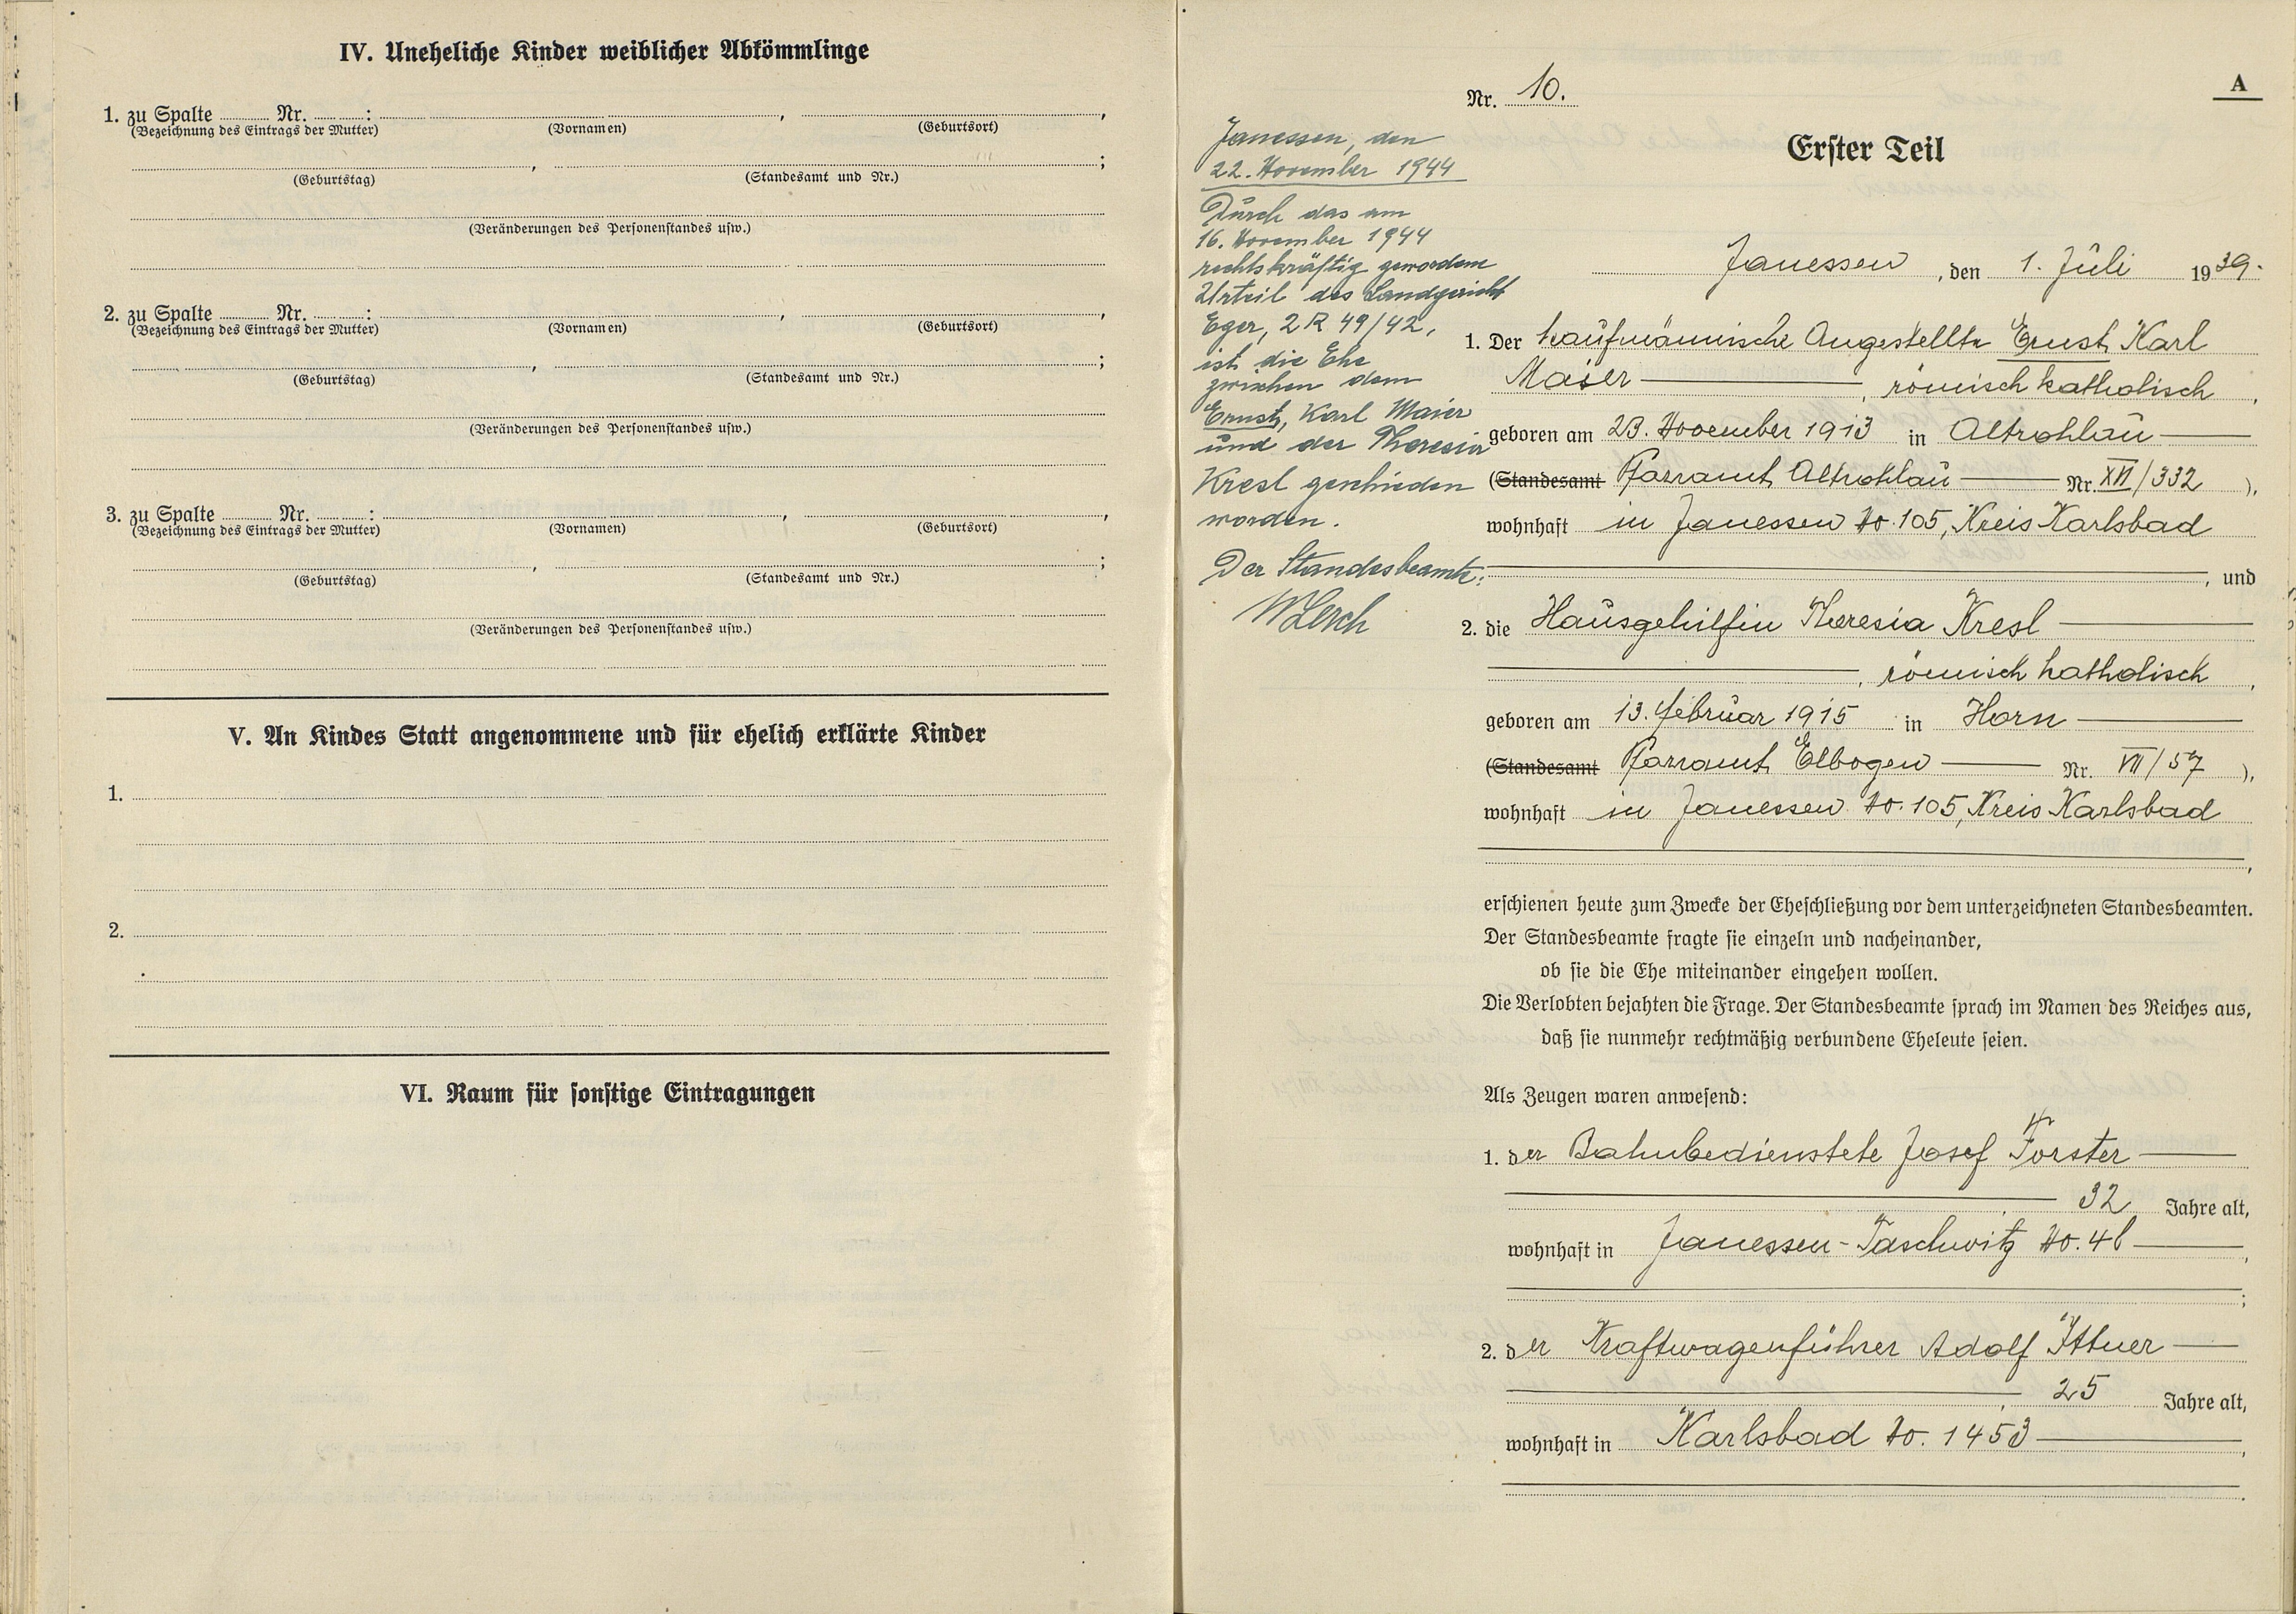 IV. Uneheliche Kinder weiblicher Abkömmlinge
1. zu Spalte ........ Nr. ........: ........, ........,
(Bezeichnung des Eintrags der Mutter) (Vornamen) (Geburtsort)
........, ........;
(Geburtstag) (Standesamt und Nr.)
(Veränderungen des Personenstandes usw.)
2. zu Spalte ........ Nr. ........: ........, ........,
(Bezeichnung des Eintrags der Mutter) (Vornamen) (Geburtsort)
........, ........;
(Geburtstag) (Standesamt und Nr.)
(Veränderungen des Personenstandes usw.)
3. zu Spalte ........ Nr. ........: ........, ........,
(Bezeichnung des Eintrags der Mutter) (Vornamen) (Geburtsort)
........, ........;
(Geburtstag) (Standesamt und Nr.)
(Veränderungen des Personenstandes usw.)
V. An Kindes Statt angenommene und für ehelich erklärte Kinder
1.
2.
VI. Raum für sonstige Eintragungen
A
Nr. 10.
Erster Teil
Janessen, den
22. November 1944
Durch das am
16. November 1944
rechtskräftig gewordene
Urteil des Landgericht
Eger, 2 R 49/42,
ist die Ehe
zwischen dem
Ernst, Karl Maier
und der Theresia
Kresl geschieden
worden.
Der Standesbeamte:
WLerch
Janessen, den 1. Juli 1939.
1. Der kaufmännische Angestellte Ernst Karl
Maier, römisch katholisch,
geboren am 23. November 1913 in Altrohlau
(Standesamt Pfarramt Altrohlau Nr. XII/332),
wohnhaft in Janessen No. 105, Kreis Karlsbad
, und
2. die Hausgehilfin Theresia Kresl
, römisch katholisch,
geboren am 13. Februar 1915 in Horn
(Standesamt Pfarramt Elbogen Nr. VII/57),
wohnhaft in Janessen No. 105, Kreis Karlsbad
,
erschienen heute zum Zwecke der Eheschließung vor dem unterzeichneten Standesbeamten.
Der Standesbeamte fragte sie einzeln und nacheinander,
ob sie die Ehe miteinander eingehen wollen.
Die Verlobten bejahten die Frage. Der Standesbeamte sprach im Namen des Reiches aus,
daß sie nunmehr rechtmäßig verbundene Eheleute seien.
Als Zeugen waren anwesend:
1. der Bahnbedienstete Josef Forster
, 32 Jahre alt,
wohnhaft in Janessen-Taschwitz No.
;
2. der Kraftwagenführer Adolf Ittner
, 25 Jahre alt,
wohnhaft in Karlsbad No. 1453,
.